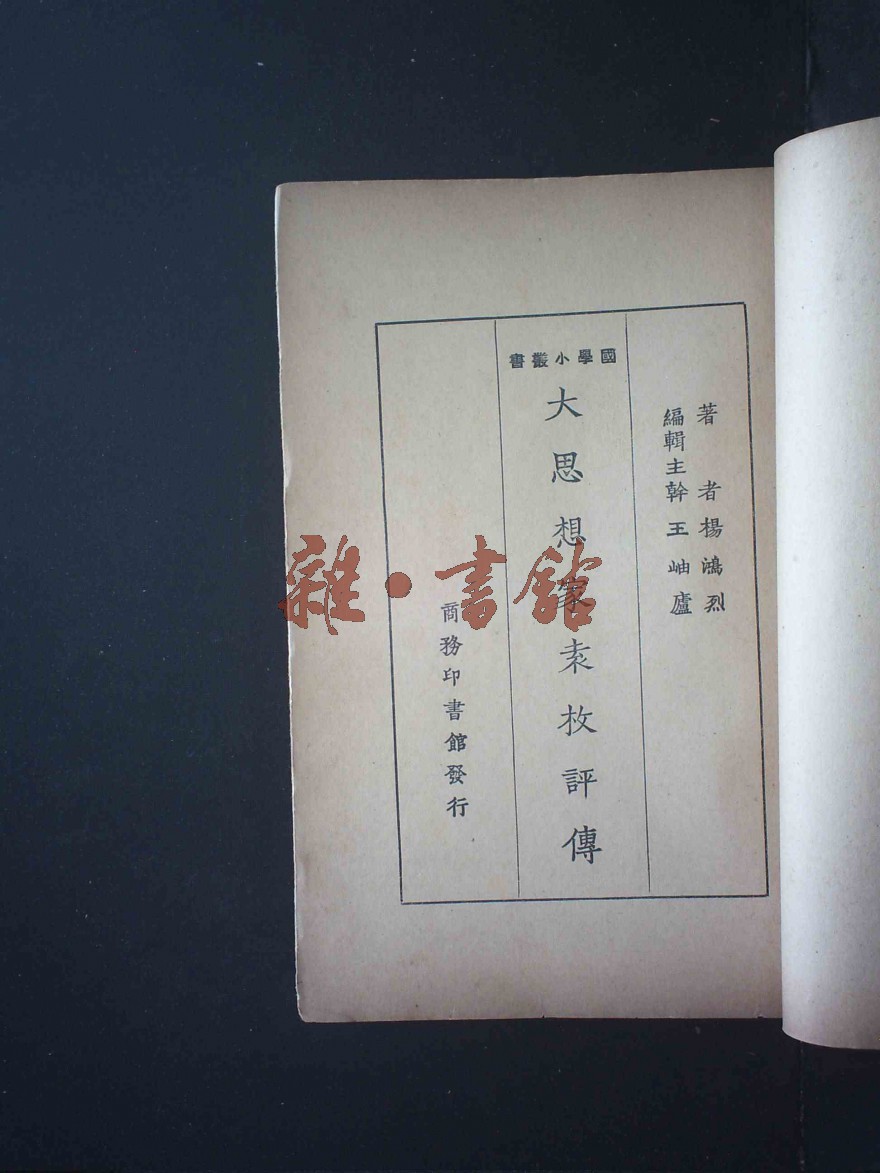 著者楊鴻烈
編輯主幹王岫廬
國學小叢書
大思想家袁枚評傳
商務印書館發行
雜·書館